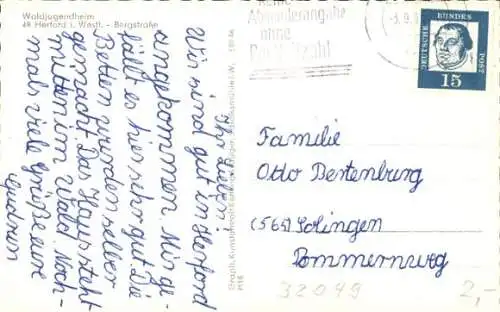 Waldjugendheim
49 Herford i. Westf. - Bergstraße
Ihr Lieben!
Wir sind gut in Herford
angekommen. Mir ge-
fällt es hier sehr gut. Die
Betten wurden selber
gemacht. Das Haus steht
mitten im Wald. Noch-
mals viele Grüße eure
Gudrun
Absenderangabe
ohne
DEUTSCHE BUNDES POST
15
Familie
Otto Bertenburg
(565) Solingen
Pommernweg
32049
2,-